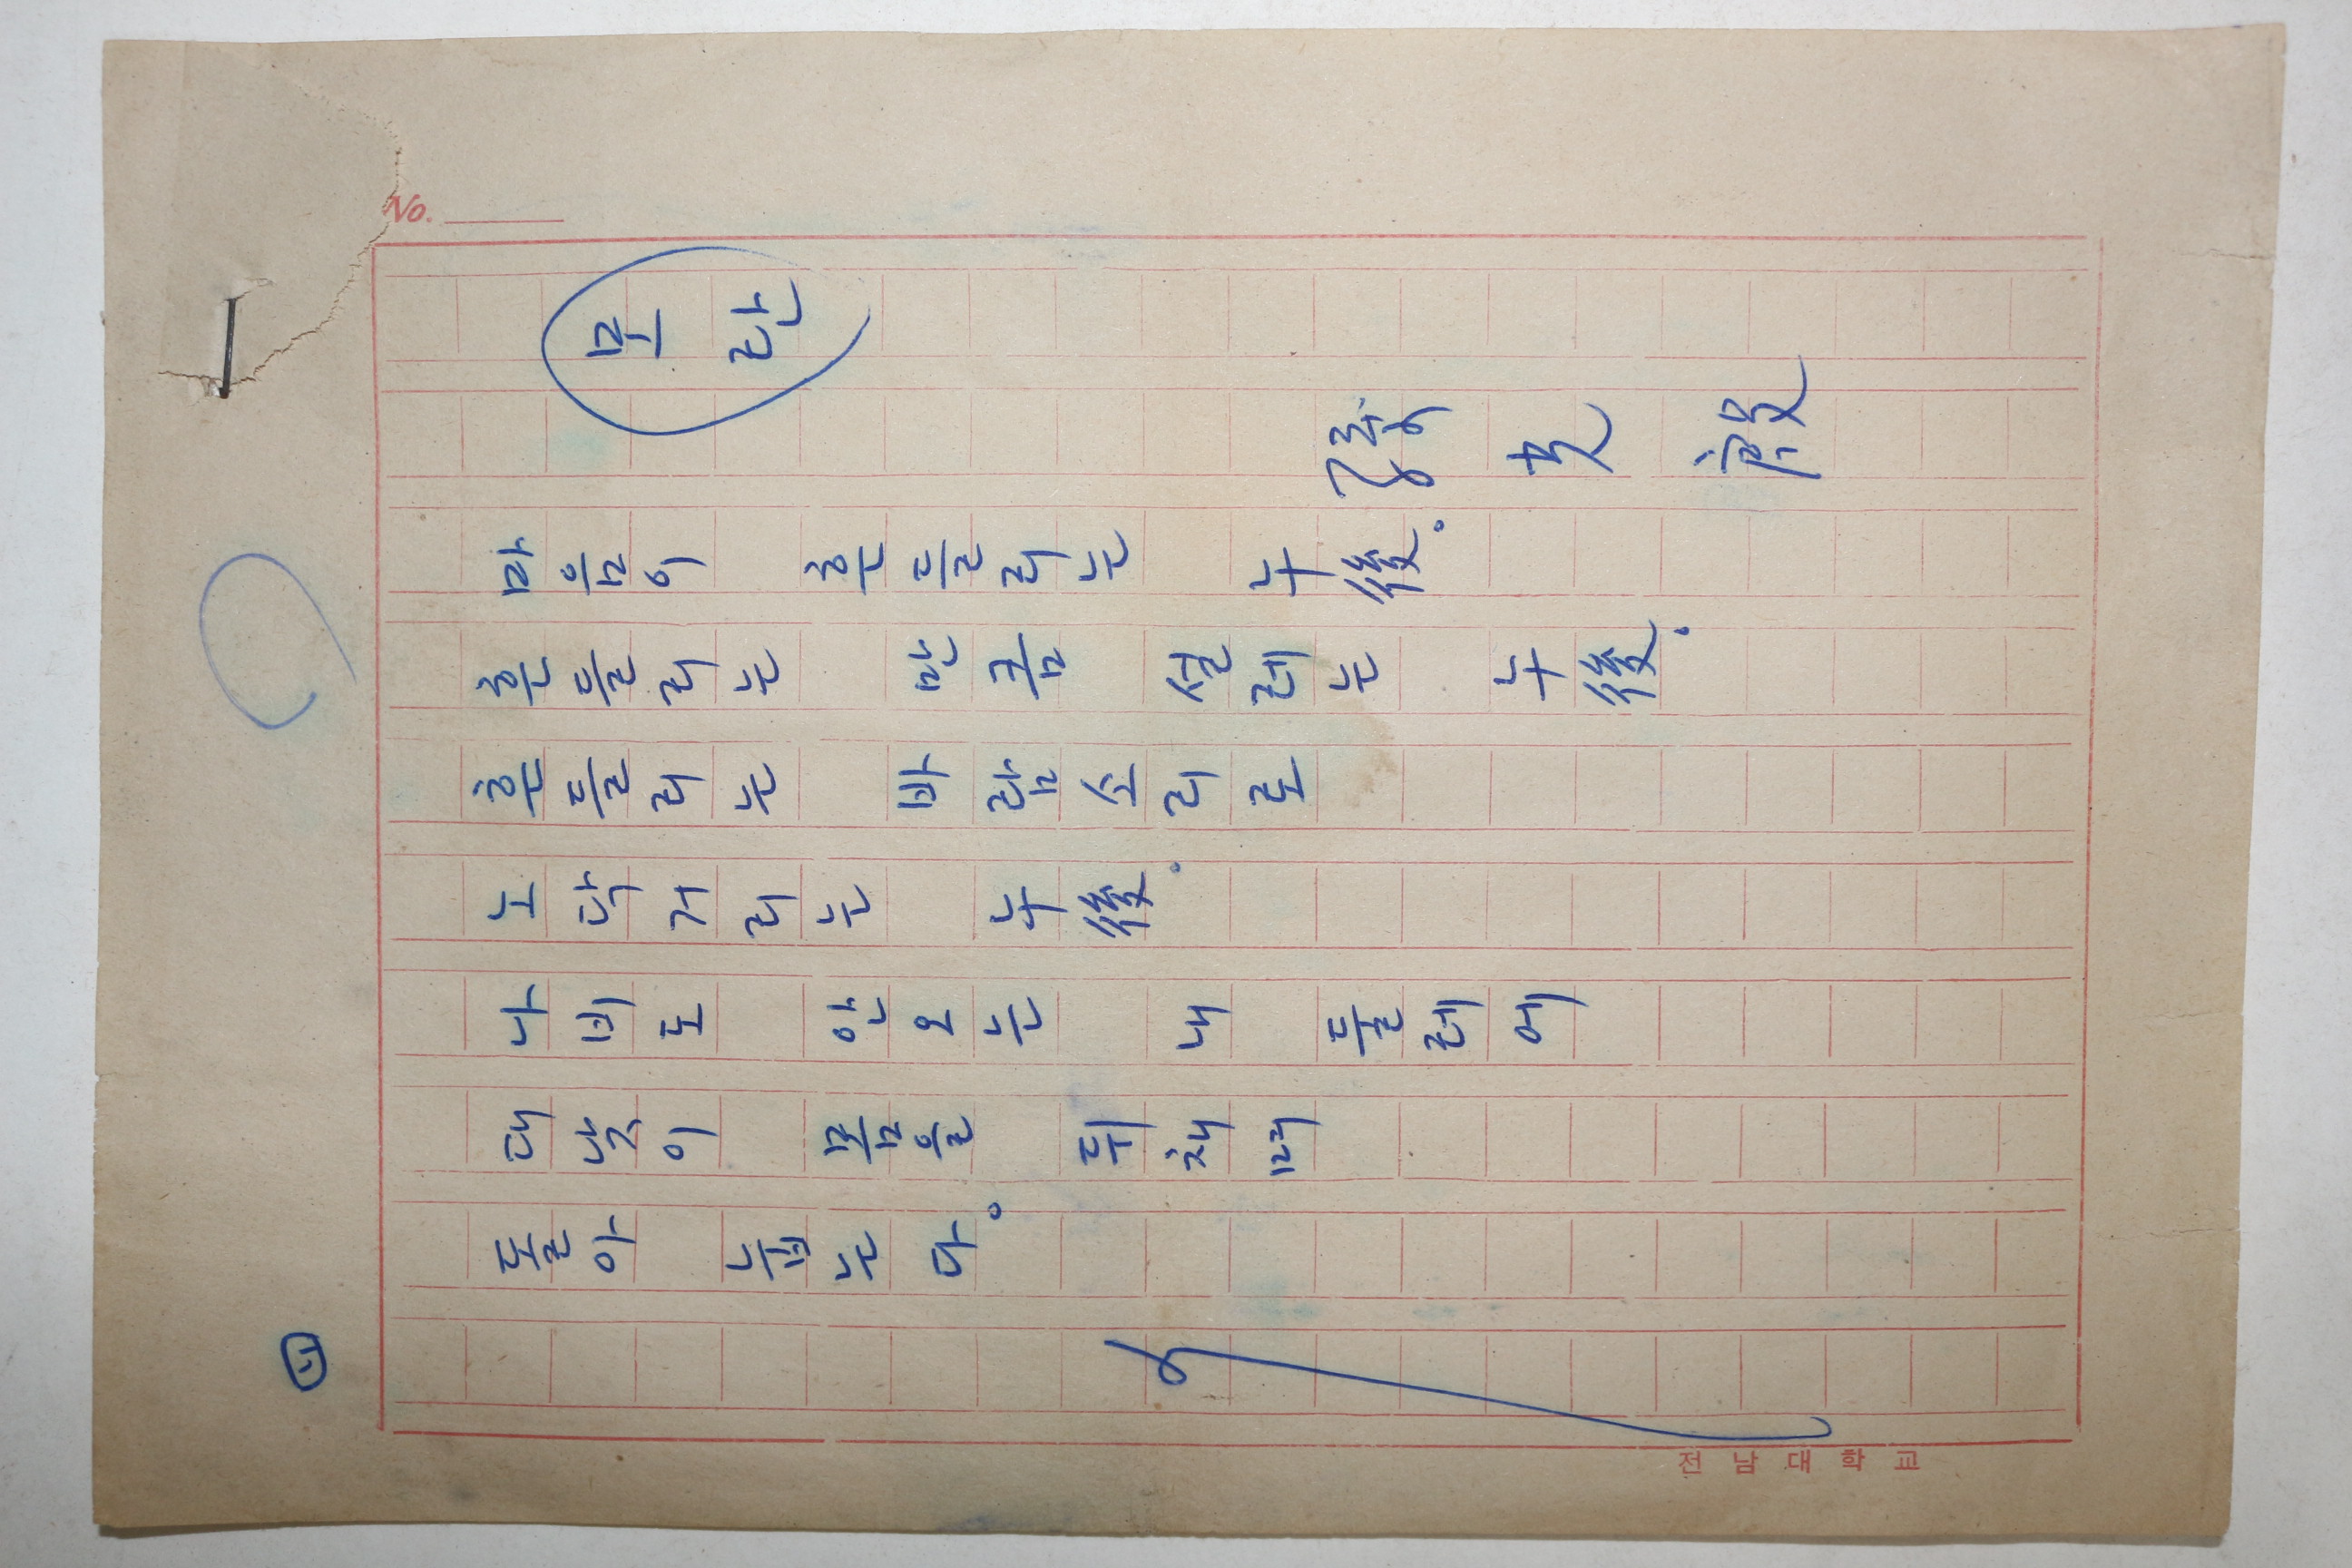 No.
모란
孫光殷
마음이 흔들리는 午後.
흔들리는 만큼 설레는 午後.
흔들리는 바람소리로
노닥거리는 午後.
나비도 안오는 내 둘레에
대낮이 몸을 뒤채며
돌아 눕는다.
전남대학교